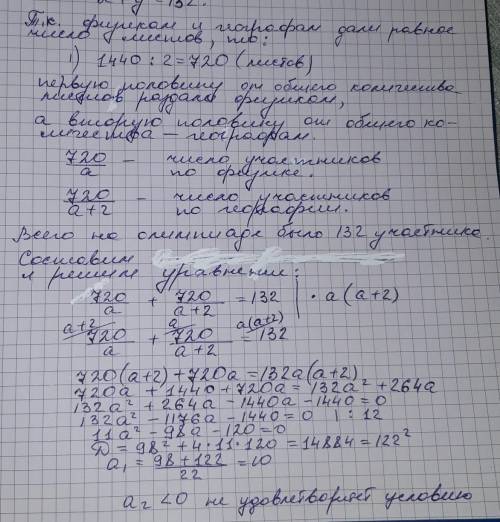 x + y = 132.
Т.к. физикам и географам дали равное
число листов, то:
1) 1440 : 2 = 720 (листов)
первую половину от общего количества
листов раздали физикам,
а вторую половину от общего ко-
личества – географам.
720/a – число участников
по физике.
720/(a+2) – число участников
по географии.
Всего на олимпиаде было 132 участника.
Составим
и решим уравнение:
720/a + 720/(a+2) = 132 | · a(a+2)
a+2/ 720/a + a/ 720/(a+2) = a(a+2)/ 132
720(a+2) + 720a = 132a(a+2)
720a + 1440 + 720a = 132a² + 264a
132a² + 264a – 1440a – 1440 = 0
132a² – 1176a – 1440 = 0 | : 12
11a² – 98a – 120 = 0
D = 98² + 4·11·120 = 14884 = 122²
a₁ = (98 + 122)/22 = 10
a₂ < 0 не удовлетворяет условию